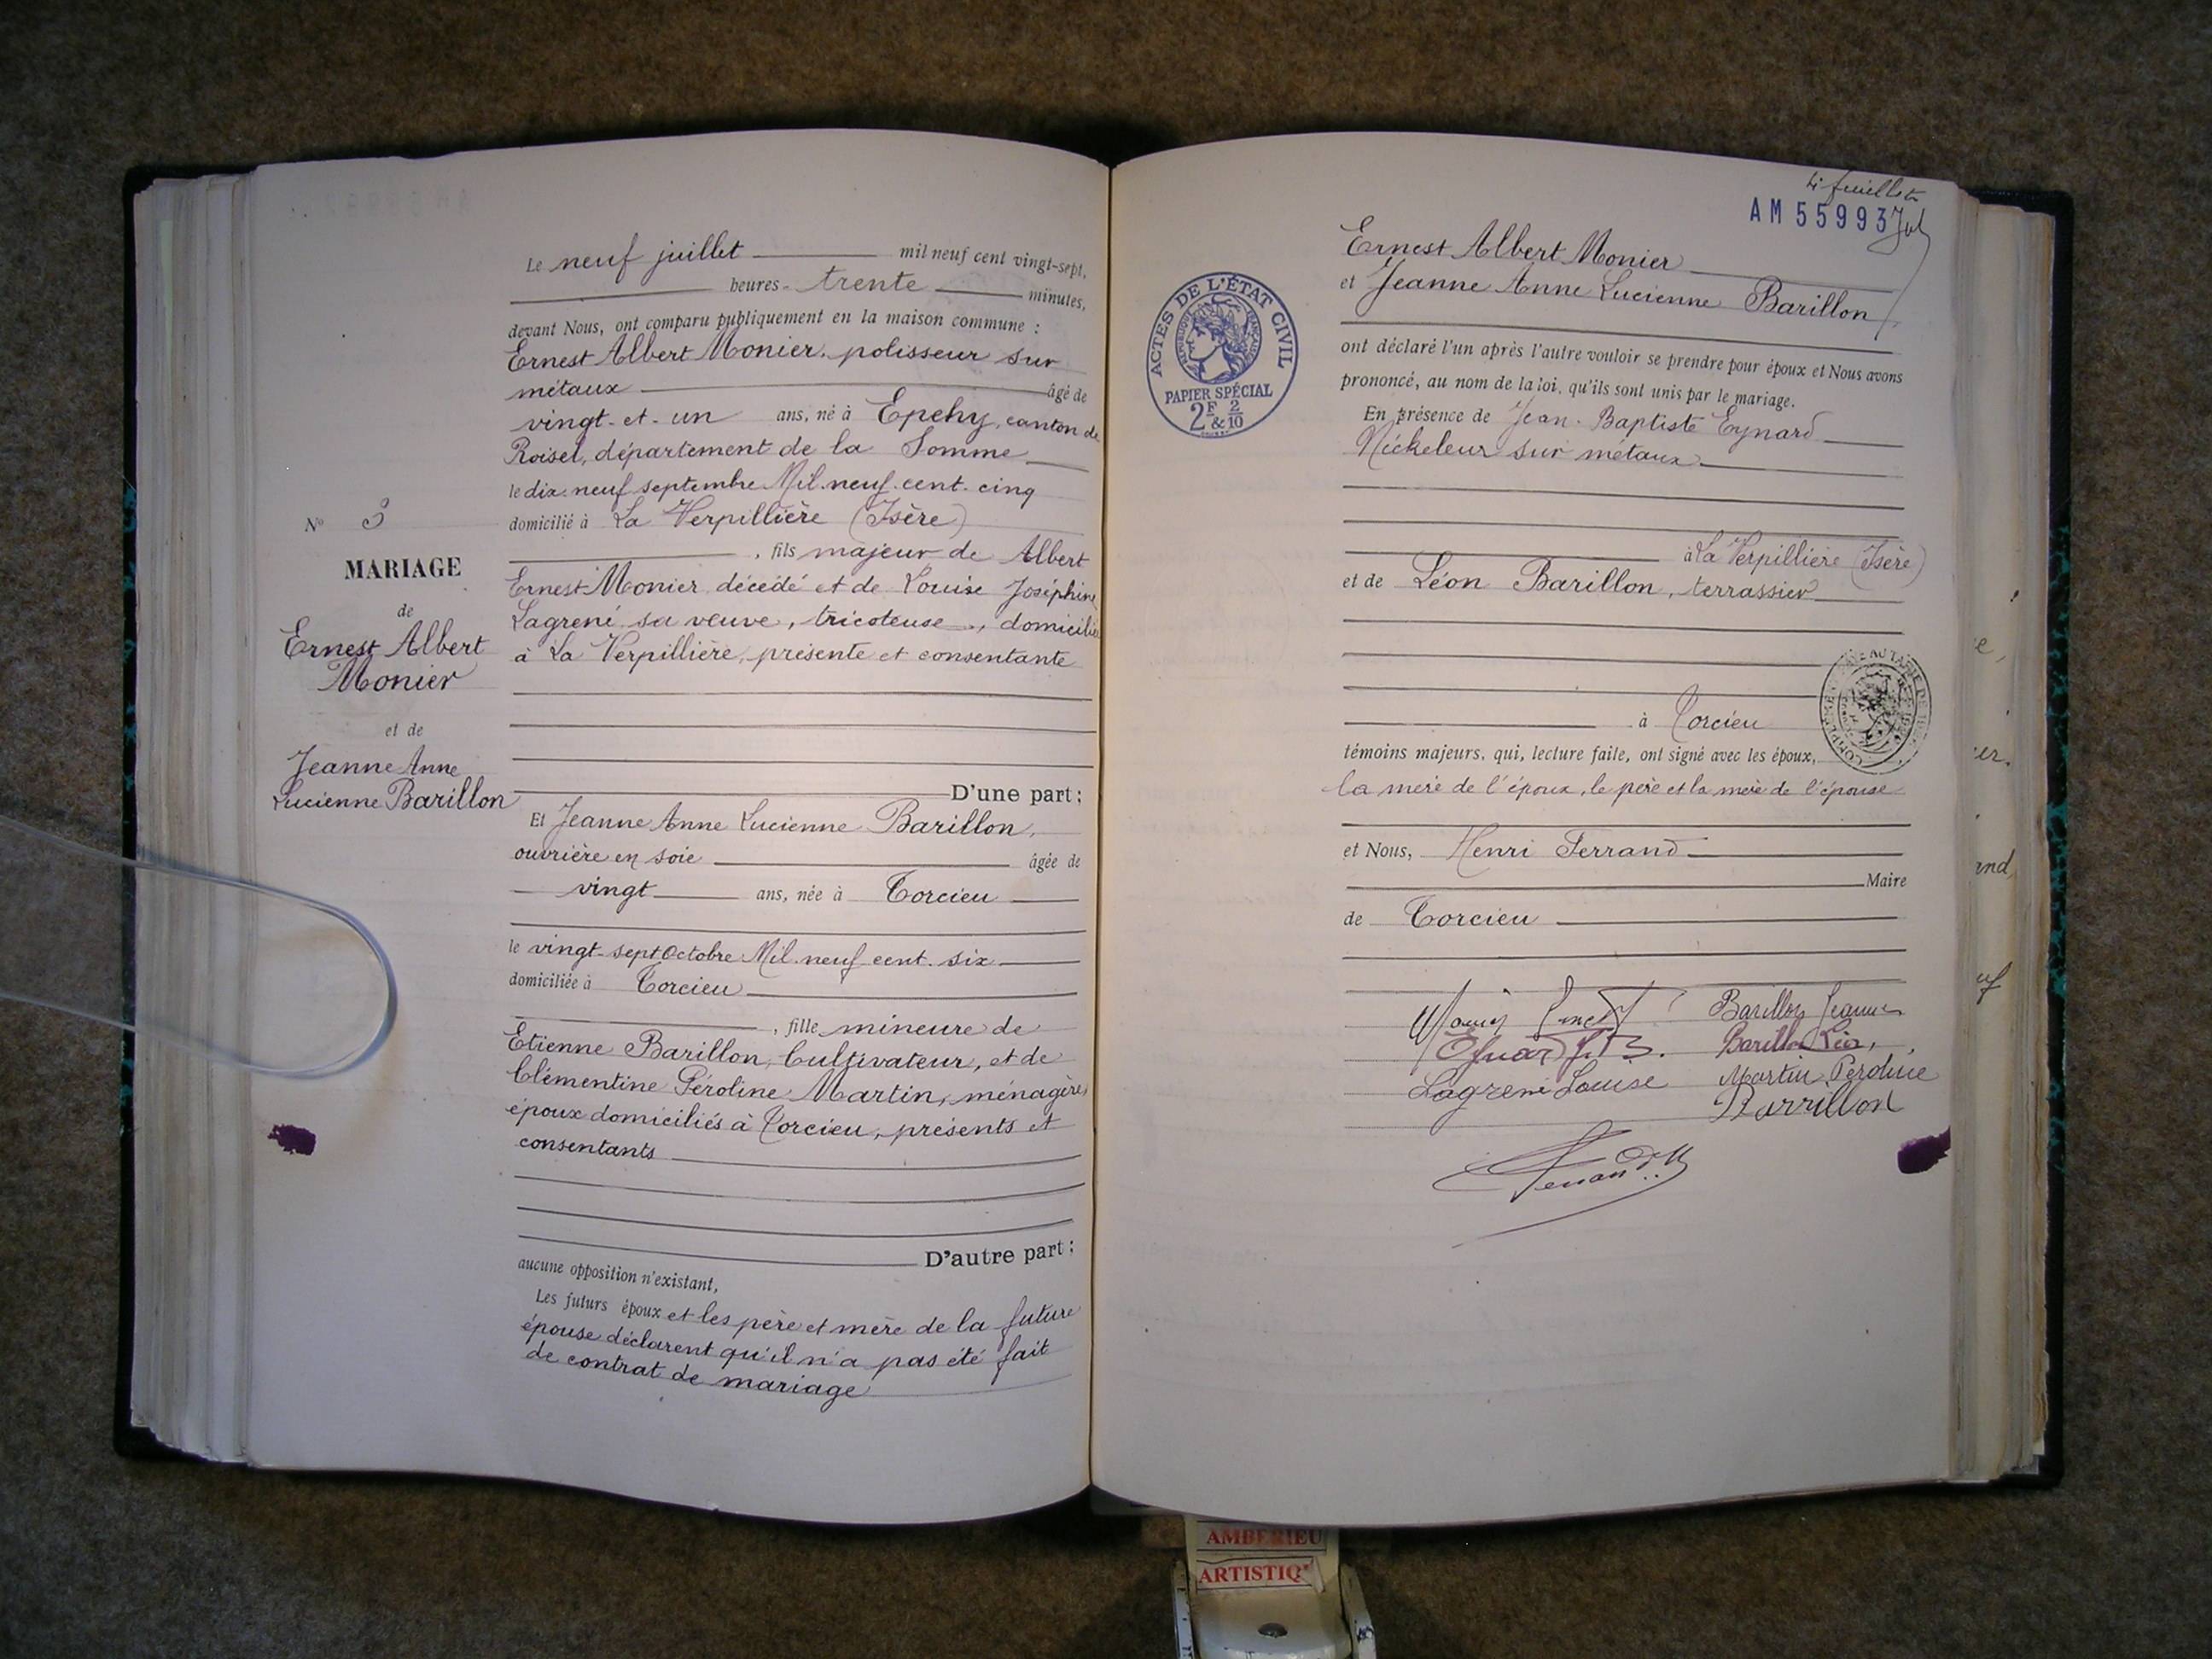 Le neuf juillet mil neuf cent vingt-sept,
heures trente minutes,
devant Nous, ont comparu publiquement en la maison commune :
Ernest Albert Monier, polisseur sur
métaux âgé de
vingt-et-un ans, né à Epehy, canton de
Roisel, département de la Somme
le dix-neuf septembre Mil neuf cent cinq
domicilié à La Verpillière (Isère)
, fils majeur de Albert
Ernest Monier décédé et de Louise Joséphine
Lagrené sa veuve, tricoteuse, domiciliée
à La Verpillière, présente et consentante
D'une part :
Et Jeanne Anne Lucienne Barillon,
ouvrière en soie âgée de
vingt ans, née à Torcieu
le vingt-sept Octobre Mil neuf cent six
domiciliée à Torcieu
, fille mineure de
Etienne Barillon, Cultivateur, et de
Clémentine Péroline Martin, ménagère,
époux domiciliés à Torcieu, présents et
consentants
D'autre part :
aucune opposition n'existant,
Les futurs époux et les père et mère de la future
épouse déclarent qu'il n'a pas été fait
de contrat de mariage
N° 3
MARIAGE
de
Ernest Albert
Monier
et de
Jeanne Anne
Lucienne Barillon
4e feuillet
AM 55993
Ernest Albert Monier
et Jeanne Anne Lucienne Barillon
ont déclaré l'un après l'autre vouloir se prendre pour époux et Nous avons
prononcé, au nom de la loi, qu'ils sont unis par le mariage.
En présence de Jean-Baptiste Eynard
Nickeleur sur métaux
à La Verpillière (Isère)
et de Léon Barillon, terrassier
à Torcieu
témoins majeurs, qui, lecture faite, ont signé avec les époux,
la mère de l'époux, le père et la mère de l'épouse
et Nous, Henri Ferrand
Maire
de Torcieu
Barillon Jeanne
Barillon Léon
Lagrené Louise Martin Peroline
Barrillon
ACTES DE L'ÉTAT CIVIL
RÉPUBLIQUE FRANÇAISE
PAPIER SPÉCIAL
2F & 2/10
AMBERIEU
ARTISTIQ